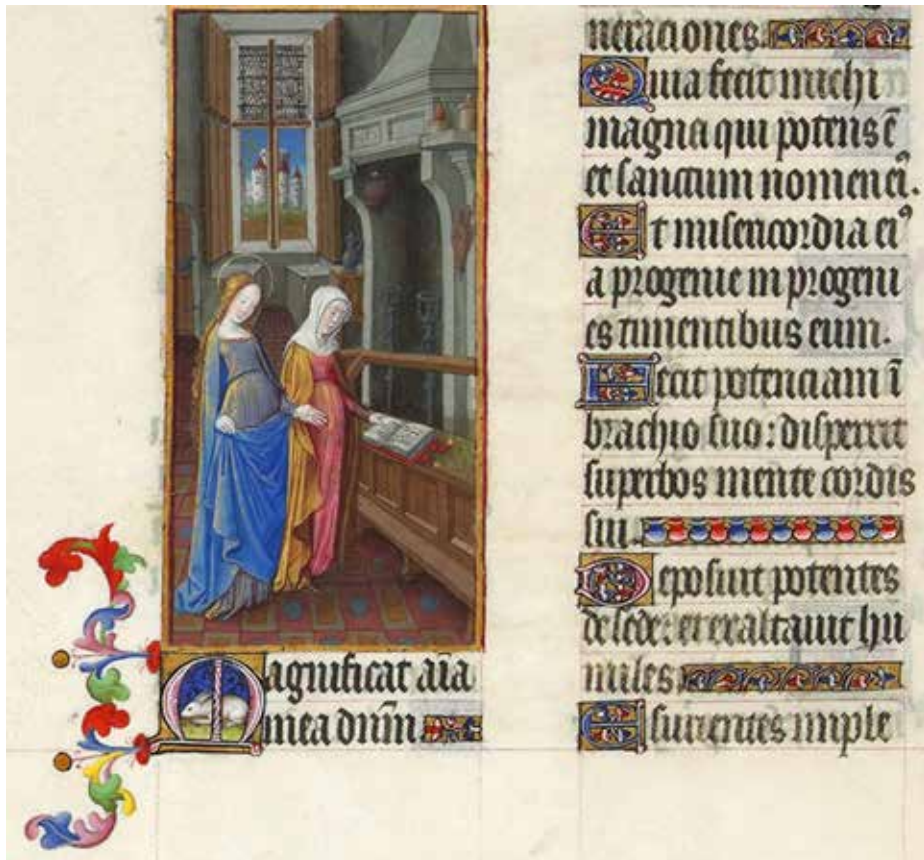 Magnificat aīa
mea dnm̄.
neraciones.
Quia fecit michi
magna qui potens ē
et sanctum nomen eiꝰ.
Et misericordia eiꝰ
a progenie in progeni
es timentibus eum.
Fecit potenciam ī
brachio suo: dispersit
superbos mente cordis
sui.
Deposuit potentes
de sede: et exaltauit hu
miles.
Esurientes imple